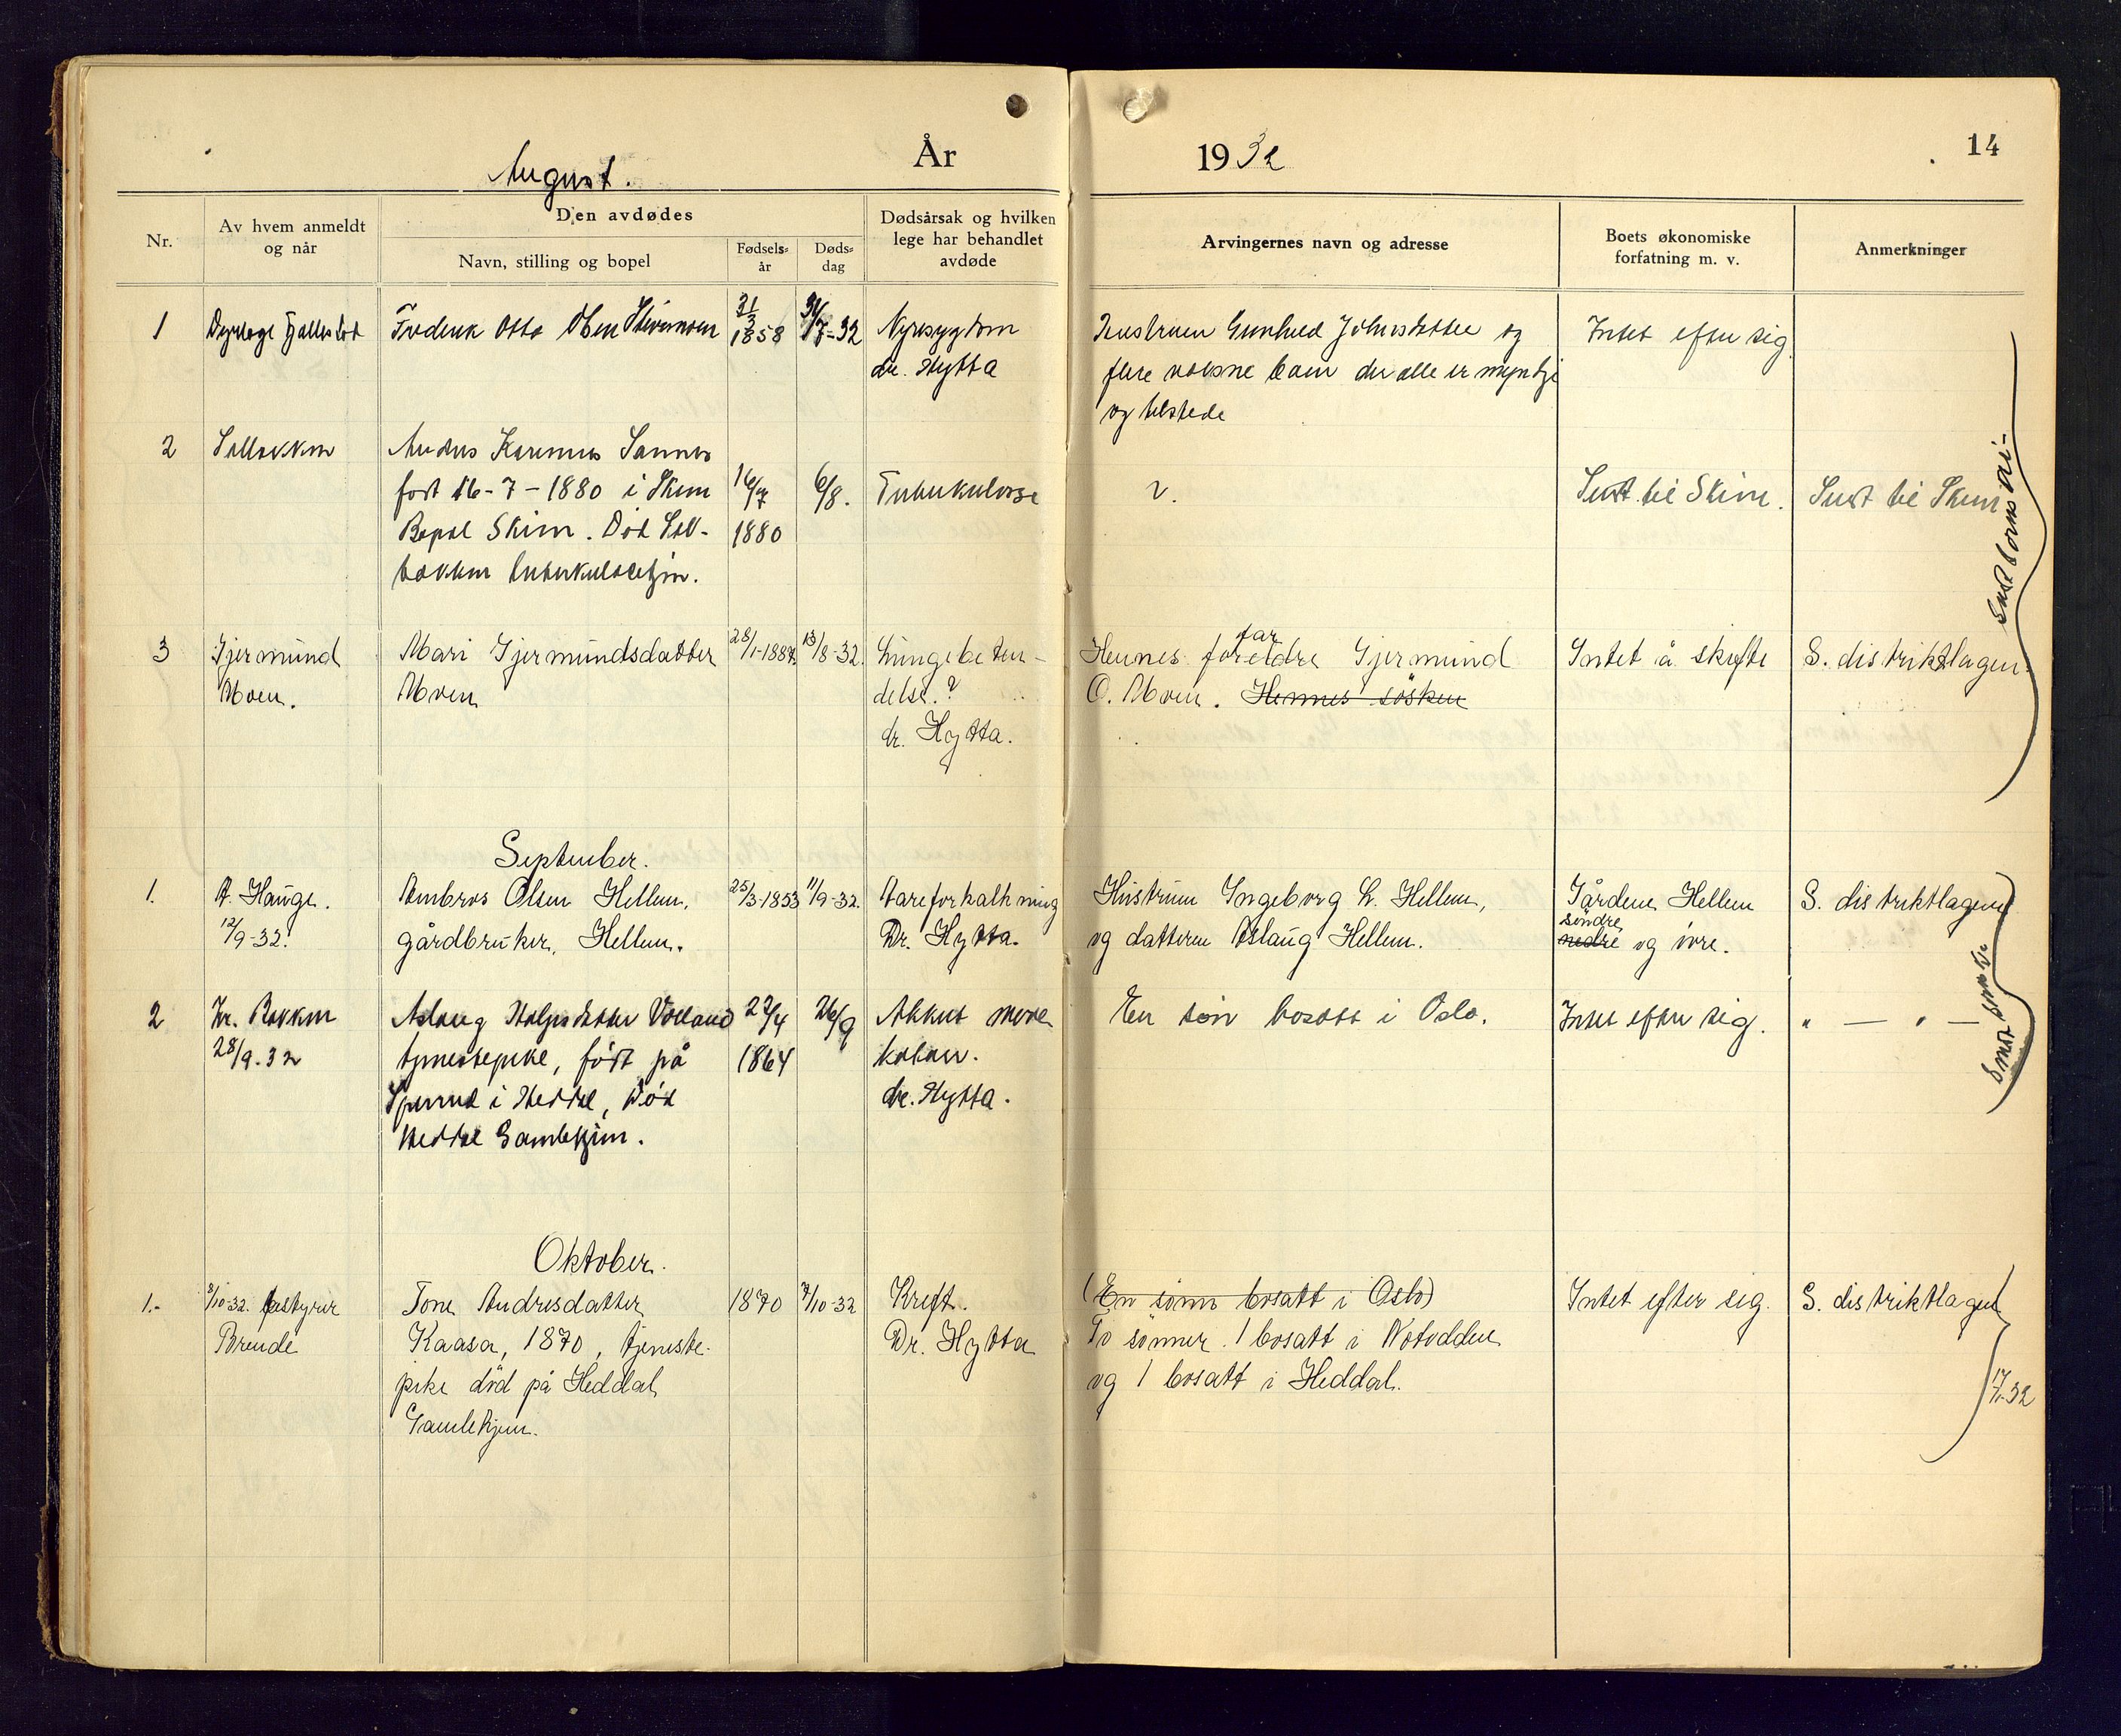 August.
År
1932
14
Nr.
Av hvem anmeldt
og når
Den avdødes
Navn, stilling og bopel
Fødsels-
år
Døds-
dag
Dødsårsak og hvilken
lege har behandlet
avdøde
Arvingernes navn og adresse
Boets økonomiske
forfatning m. v.
Anmerkninger
1
Otto
1858
31/7-32
Nyresygdom
dr. Hytta
Gunhild Johnsdatter og
flere voksne barn der alle er myndige
og tilstede
Intet efter sig
2
Sannes
født 16-7-1880 i Skien
Bopel Skien. Død Sol-
bakken tuberkulosehjem.
16/7
1880
6/8.
Tuberkulose
?.
Sendt til Skien.
Sendt til Skien
3
Gjermund
Moen.
Mari Gjermundsdatter
Moen
28/1-1887.
13/8-32.
Lungebeten-
delse.?
dr. Hytta.
far
Hennes foreldre Gjermund
O. Moen. Hennes søsken
Intet å skifte
S. distriktlagen.
September.
1.
A. Hauge.
12/9-32.
Ambros Olsen Hellem,
gårdbruker, Hellem.
25/3-1853
11/9-32.
Åreforkalkning
Dr. Hytta.
Hustrum Ingeborg L. Hellem,
og datteren Aslaug Hellem.
Gårdene Hellem
søndre
nedre og øvre.
S. distriktlagen
2
Kr. Bakken
28/9.32
Aslaug
tjenestepike, født på
i Heddal, død
Heddal Gamlehjem.
22/4
1864
26/9
Akkut mave
katarr.
dr. Hytta.
En søn bosatt i Oslo.
Intet efter sig.
" — " —
Oktober.
1.-
8/10-32. Bestyrer
Brende
Tone Andresdatter
Kaasa, 1870, tjeneste-
pike død på Heddal
Gamlehjem.
1870
7/10-32
Kreft.
Dr. Hytta
(En sønn bosatt i Oslo)
To sønner. 1 bosatt i Notodden
og 1 bosatt i Heddal.
Intet efter sig.
S. distriktlagen